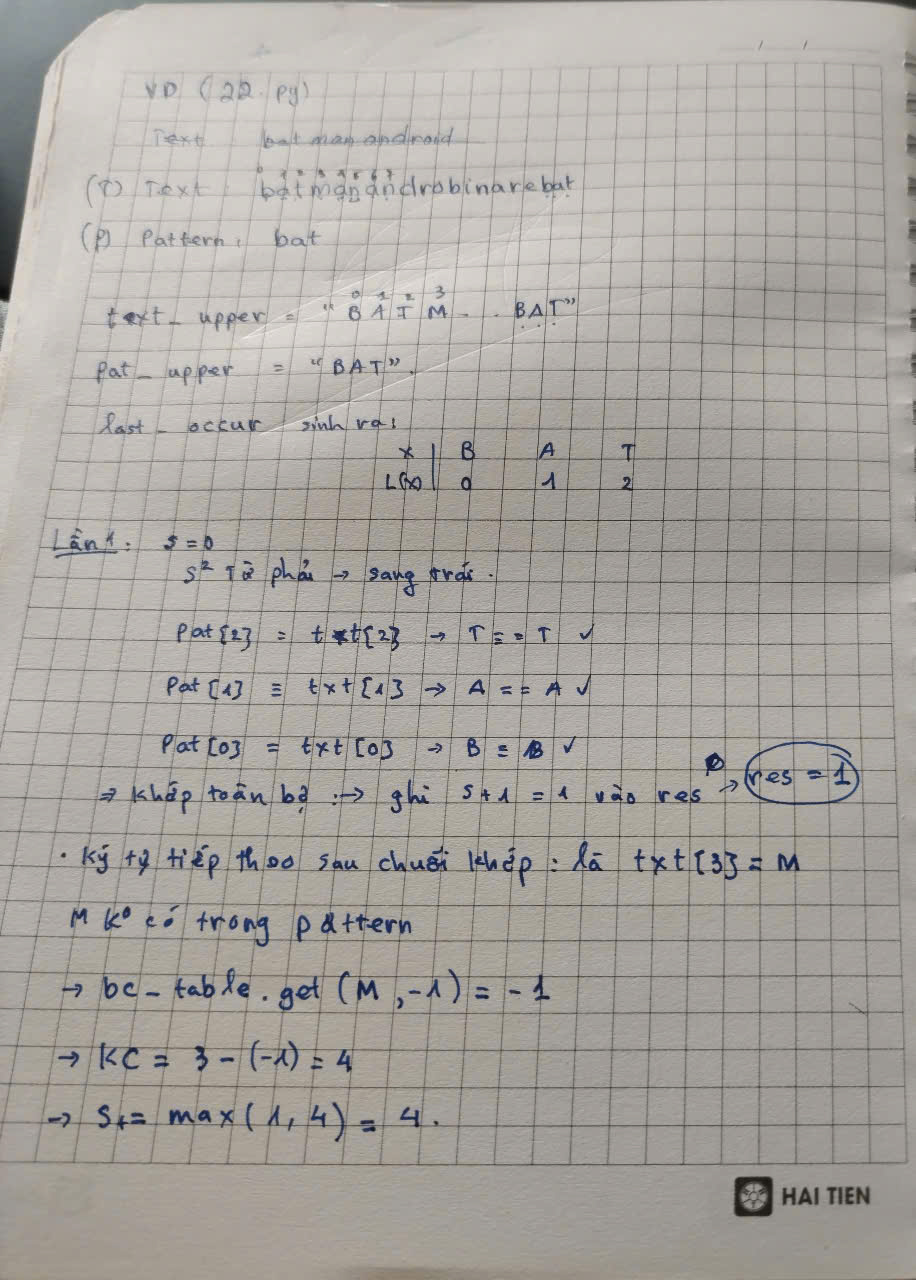 VD (22.py)
Text batmanandroid
0 1 2 3 4 5 6 7
(T) Text: batmanandrobinarebat
(P) Pattern: bat
0 1 2 3
text_upper = "BATM . . BAT"
Pat_upper = "BAT".
last_occur sinh ra:
x | B A T
L(x) | 0 1 2
Lần 1: s = 0
s² Từ phải → sang trái.
Pat[2] = txt[2] → T == T ✓
Pat[1] = txt[1] → A == A ✓
Pat[0] = txt[0] → B = B ✓
⇒ khớp toàn bộ :→ ghi s+1 = 1 vào res → res = 1
. Ký tự tiếp theo sau chuỗi khớp: là txt[3] = M
M k° có trong pattern
→ bc_table.get(M,-1) = -1
→ KC = 3 - (-1) = 4
→ S+= max(1, 4) = 4.
HAI TIEN